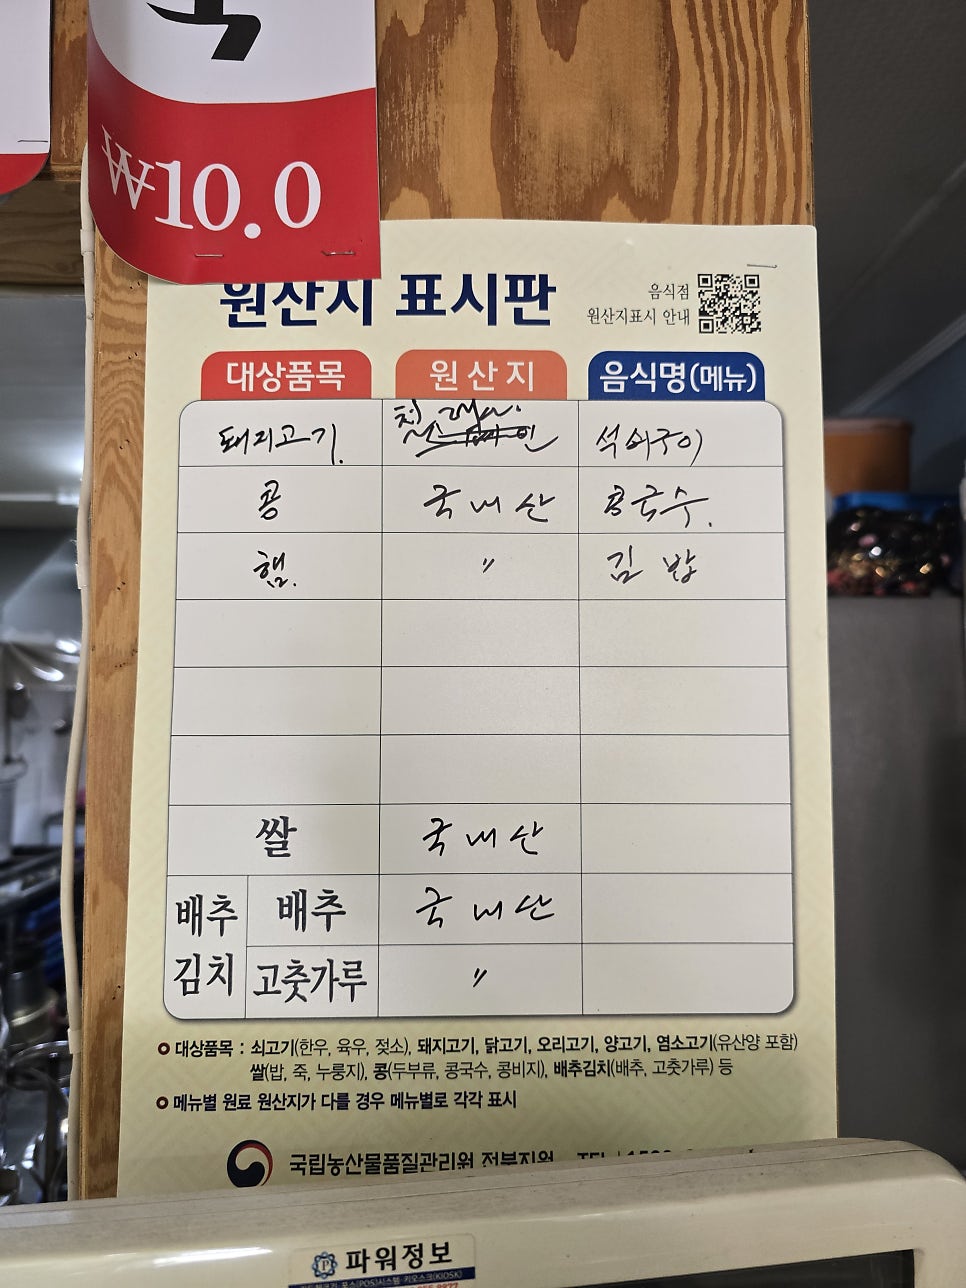 ₩10.0
원산지 표시판
음식점
원산지표시 안내
대상품목 원산지 음식명(메뉴)
돼지고기. 석쇠구이
콩 국내산 콩국수.
햄. 〃 김밥
쌀 국내산
배추김치 배추 국내산
고춧가루 〃
대상품목 : 쇠고기(한우, 육우, 젖소), 돼지고기, 닭고기, 오리고기, 양고기, 염소고기(유산양 포함)
쌀(밥, 죽, 누룽지), 콩(두부류, 콩국수, 콩비지), 배추김치(배추, 고춧가루) 등
메뉴별 원료 원산지가 다를 경우 메뉴별로 각각 표시
국립농산물품질관리원 전북지원
파워정보